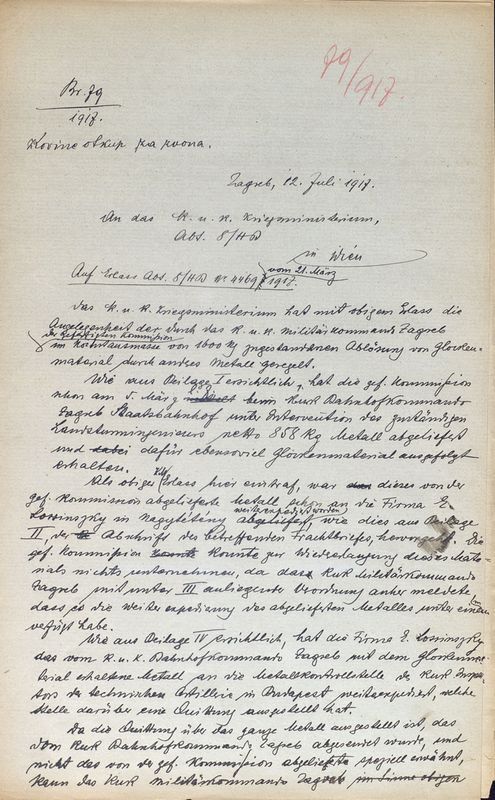 79/917.
Br. 79
1917.
Kovine otkup za zvona.
Zagreb, 12. Juli 1917.
An das K. u. K. Kriegsministerium,
Abt. 8/HB
in Wien
Auf Erlass Abt. 8/HB Nr 4469 vom 21. März 1917.
Das K. u. K. Kriegsministerium hat mit obigem Erlass die
Angelegenheit der durch das K. u. K. Militärkommando Zagreb
der gefertigten Kommission
im von 1600 Kg zugestandenen Ablösung von Glocken-
material durch andres Metall geregelt.
Wie aus Beilage I ersichtlich, hat die gef. Kommission
nun am 5. März beim KuK Bahnhofkommando
Zagreb Staatsbahnhof unter Intervention des zuständigen
Landsturmingenieurs netto 858 Kg Metall abgeliefert
und dafür ebensoviel Glockenmaterial ausgefolgt
erhalten.
Als obiger Erlass hier eintraf, war dieses von der
gef. Kommission abgelieferte Metall schon an die Firma E.
weiterexpediert worden
Lovinszky in Nagytétény abgeliefert wie dies aus Beilage
II, der Abschrift des betreffenden Frachtbriefes, hervorgeht. Die
gef. Kommission konnte zur Wiedererlangung dieses Mate-
rials nichts unternehmen, da das KuK Militärkommando
Zagreb mit unter III anliegender Verordnung anher meldete,
dass es die Weiterexpedierung des abgelieferten Metalles, unter einem
verfügt habe.
Wie aus Beilage IV ersichtlich, hat die Firma E. Lovinszky
das vom K. u. K. Bahnhofkommando Zagreb mit dem Glockenma-
terial erhaltene Metall an die Metallkontrollstelle des KuK Inspek-
tors der technischen Artillerie in Budapest weiterexpediert, welche
Stelle darüber eine Quittung ausgestellt hat.
Da die Quittung über das ganze Metall ausgestellt ist, das
vom KuK Bahnhofkommando Zagreb abgesendet wurde, und
nicht das von der gef. Kommission abgelieferte speziell erwähnt,
kann das KuK Militärkommando Zagreb im Sinne obigen